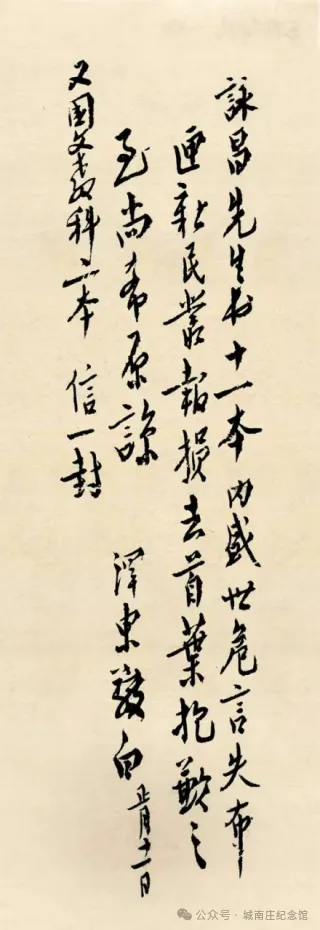 詠昌先生书十一本内盛世危言失布
匣新民叢報損去首葉抱歉之
至尚希原諒
澤東敬白 正月十一日
又國文教科二本 信一封
公众号·城南庄纪念馆